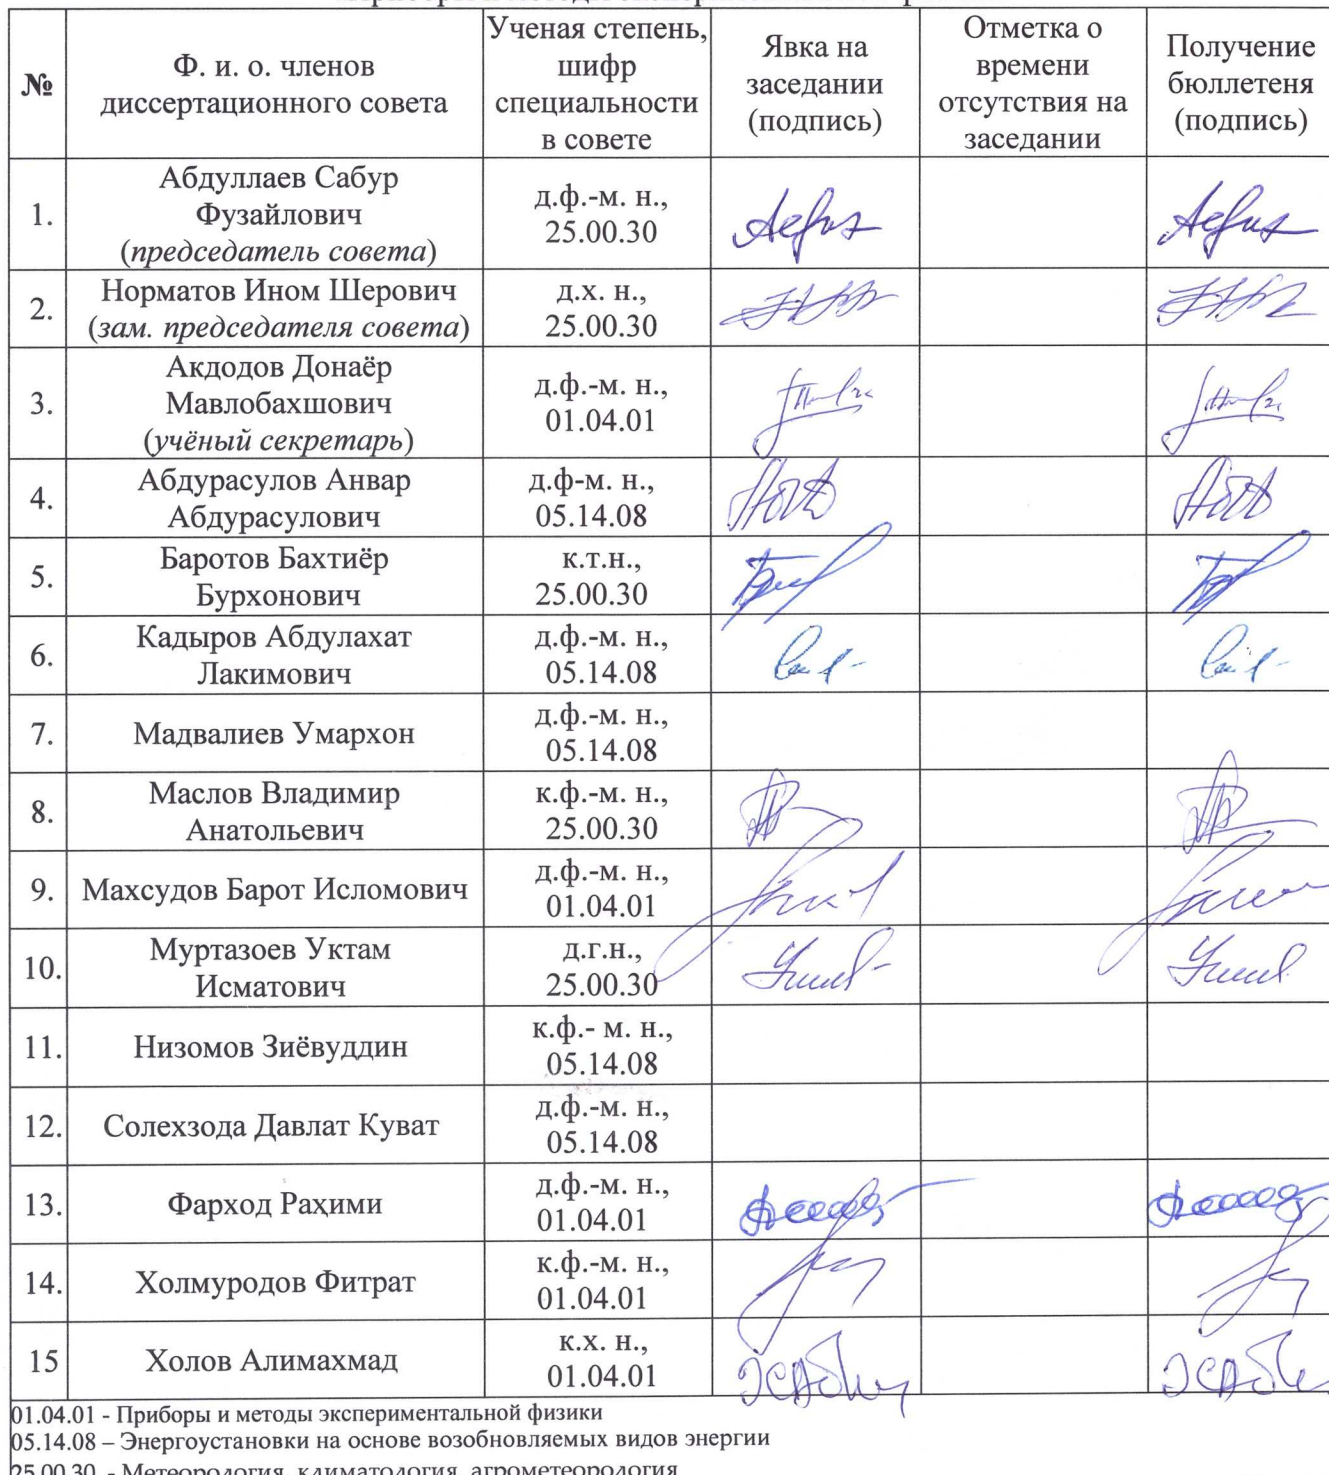 №
Ф. и. о. членов
диссертационного совета
Ученая степень,
шифр
специальности
в совете
Явка на
заседании
(подпись)
Отметка о
времени
отсутствия на
заседании
Получение
бюллетеня
(подпись)
1.
Абдуллаев Сабур
Фузайлович
(председатель совета)
д.ф.-м. н.,
25.00.30
2.
Норматов Ином Шерович
(зам. председателя совета)
д.х. н.,
25.00.30
3.
Акдодов Донаёр
Мавлобахшович
(учёный секретарь)
д.ф.-м. н.,
01.04.01
4.
Абдурасулов Анвар
Абдурасулович
д.ф-м. н.,
05.14.08
5.
Баротов Бахтиёр
Бурхонович
к.т.н.,
25.00.30
6.
Кадыров Абдулахат
Лакимович
д.ф.-м. н.,
05.14.08
7.
Мадвалиев Умархон
д.ф.-м. н.,
05.14.08
8.
Маслов Владимир
Анатольевич
к.ф.-м. н.,
25.00.30
9.
Махсудов Барот Исломович
д.ф.-м. н.,
01.04.01
10.
Муртазоев Уктам
Исматович
д.г.н.,
25.00.30
11.
Низомов Зиёвуддин
к.ф.- м. н.,
05.14.08
12.
Солехзода Давлат Куват
д.ф.-м. н.,
05.14.08
13.
Фарход Раҳими
д.ф.-м. н.,
01.04.01
14.
Холмуродов Фитрат
к.ф.-м. н.,
01.04.01
15
Холов Алимахмад
к.х. н.,
01.04.01
01.04.01 - Приборы и методы экспериментальной физики
05.14.08 – Энергоустановки на основе возобновляемых видов энергии
25.00.30 - Метеорология, климатология, агрометеорология